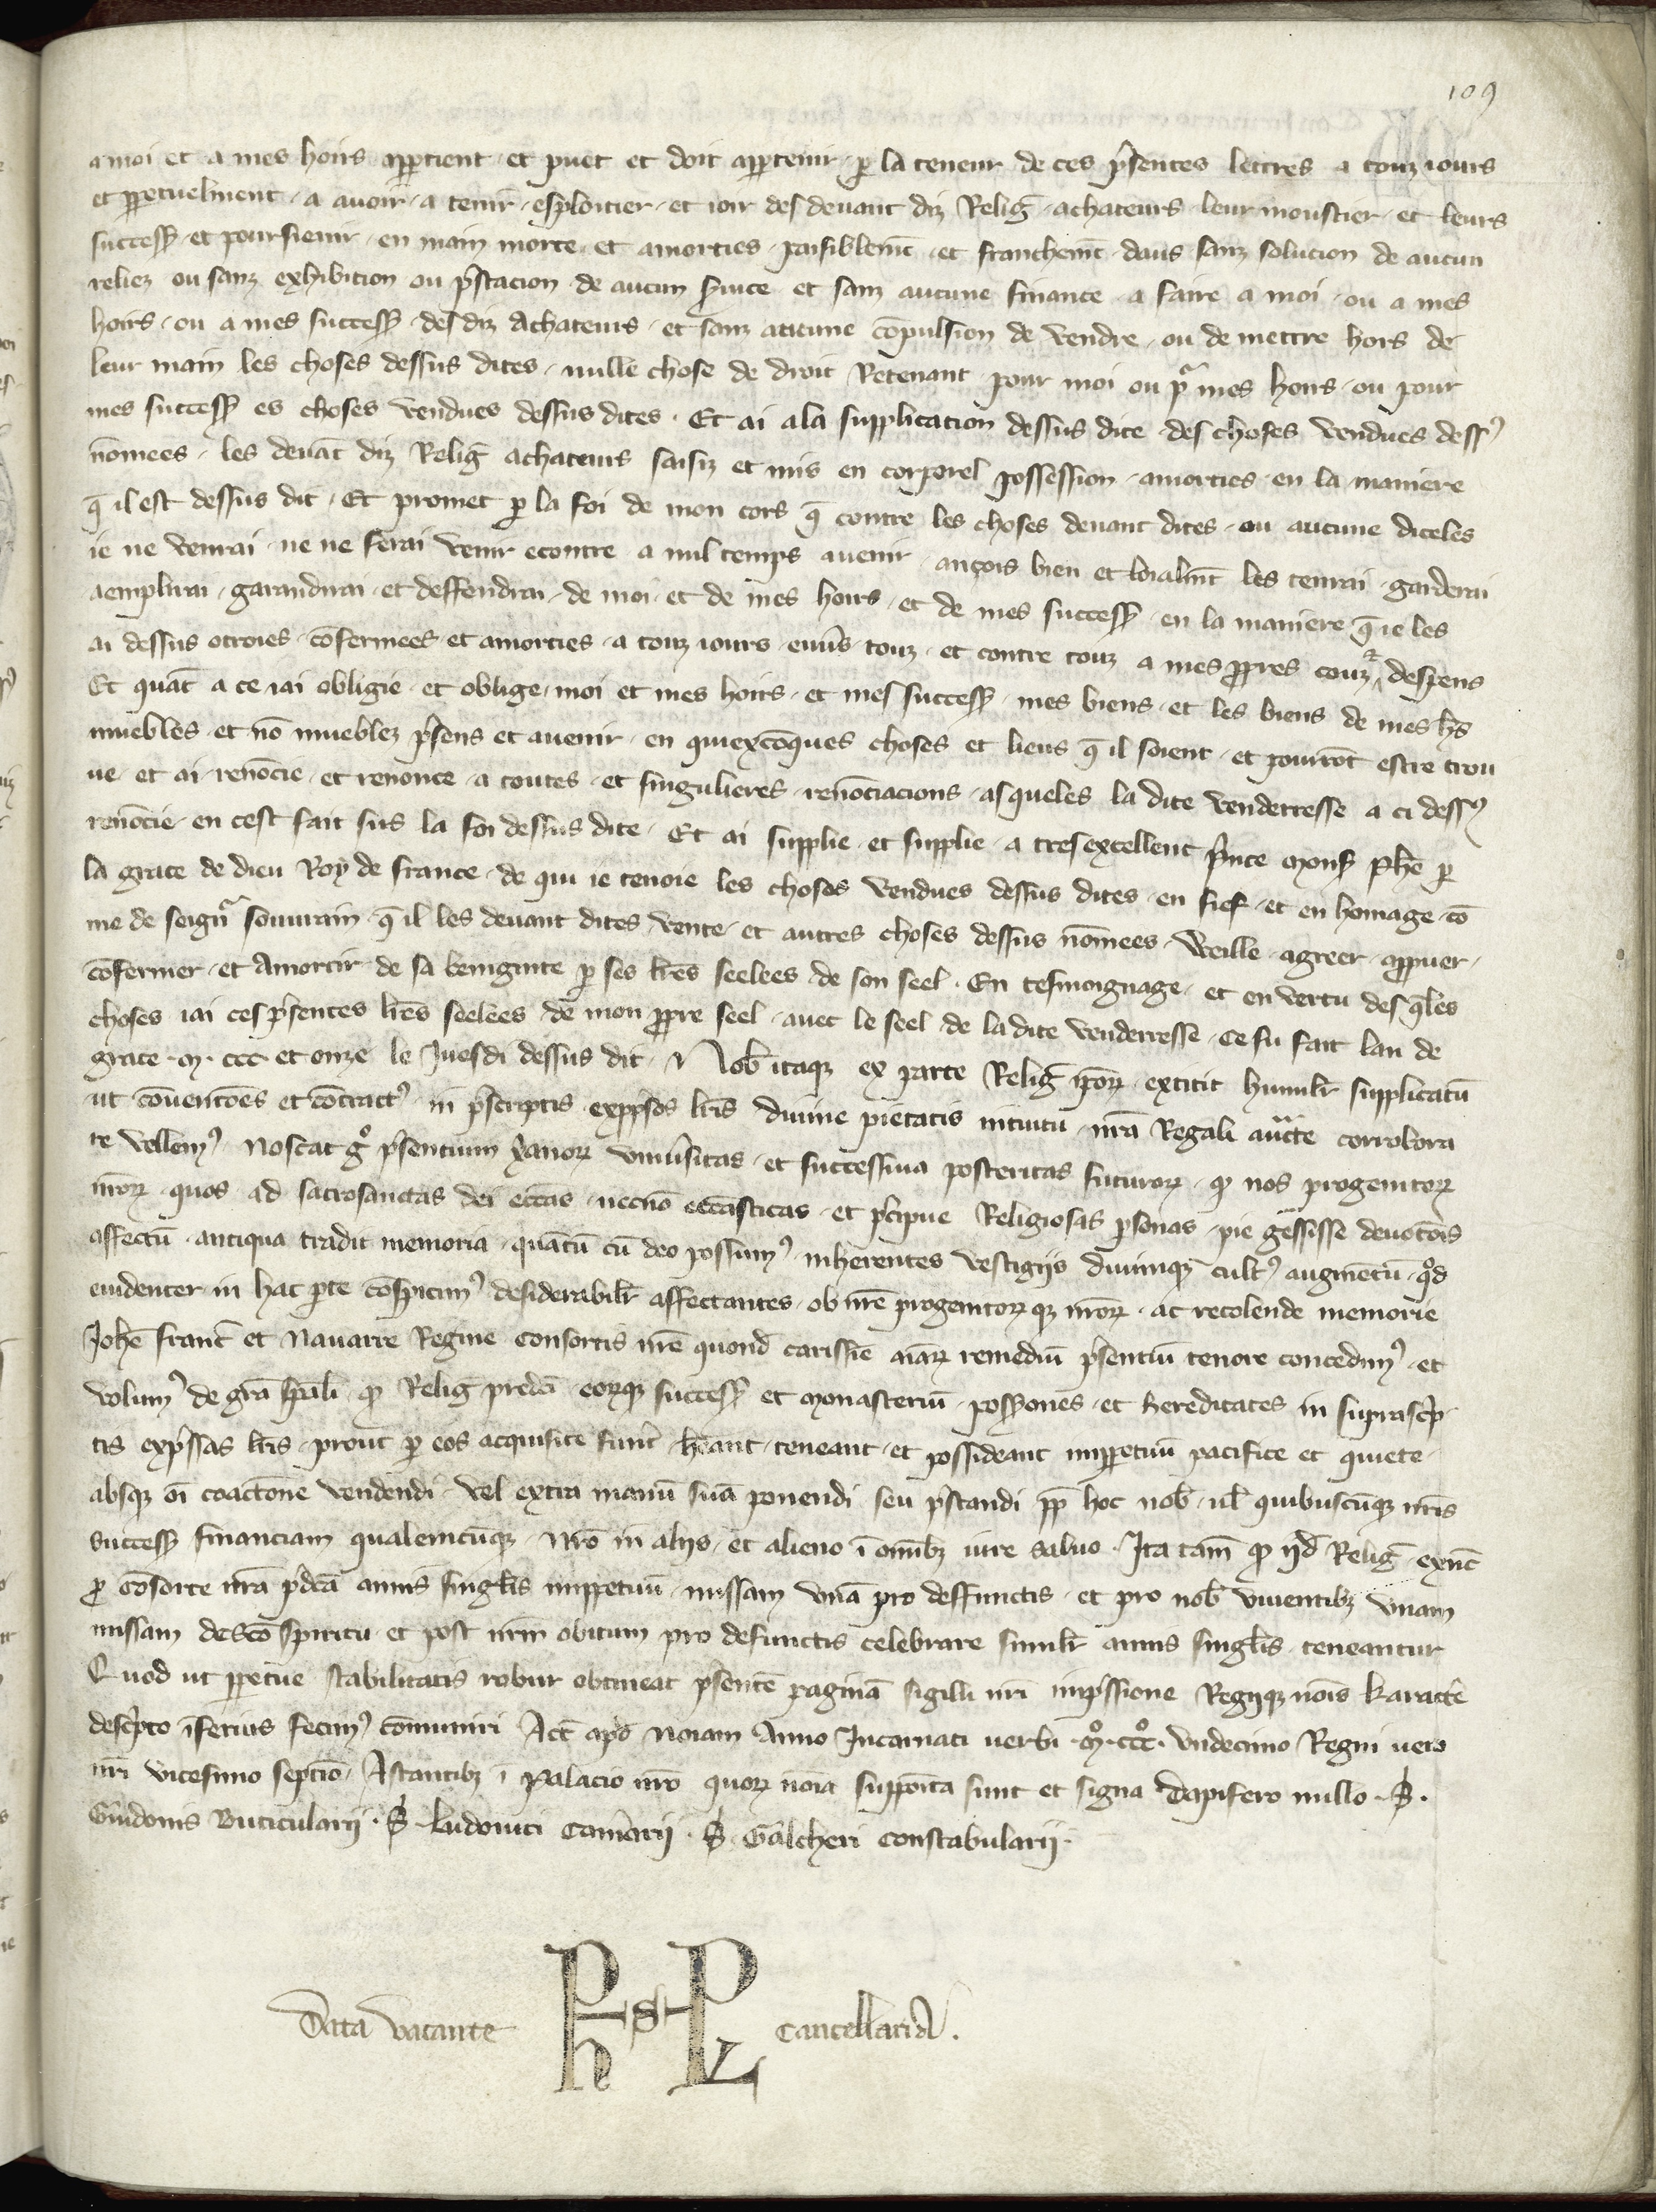 109
a moi et a mes hoirs app̱tient · et puet et doit app̱tenir · p̱ la teneur de ces p̃sentes lettres a touz iours
et pp̱etuelment · a avoir · a tenir · esploitier · et ioir des devant diz Relig̃ · achateurs · leur moustier · et leurs
success̃ · et poursievir · en main morte · et amorties · paisiblem̃t · et franchem̃t · dans sanz solucion de aucun
reliez ou sanz exhibition ou p̃stacion de aucun s̃vice et sanz aucune finance · a faire a moi · ou a mes
hoirs · ou a mes success̃ · des diz Achateurs · et sanz aucune cõpulsion de vendre · ou de mettre hors de
leur main les choses dessus dites · nulle chose de droit Retenant pour moi ou pr̃ mes hoirs · ou pour
mes success̃ es choses vendues dessus dites · Et ai ala supplication dessus dite des choses vendues dess⁹
nõmees · les devãt diz Relig̃ achateurs saisiz et mis en corporel possession · amorties · en la maniere
q̃ il est dessus dit · Et promet p̱ la foi de mon cors q̃ contre les choses devant dites · ou aucune diceles
ie ne venrai · ne ne ferai venir econtre a nul temps avenir · ançois bien et loialm̃t les tenrai · garderai
aemplirai · garandirai · et deffendrai · de moi · et de mes hoirs · et de mes success̃ · en la maniere q̃ ie les
ai dessus otroies · cõfermees et amorties · a touz iours · env̾s touz · et contre touz a mes pp̱res couz ⁊ despens
Et quãt a ce iai obligie · et oblige · moi et mes hoirs · et mes success̃ · mes biens · et les biens de mes h̃s
muebles · et nõ mueblez p̃sens et avenir · en quiexcõques choses et lieus q̃ il soient · et pourrõt estre trou
ve · et ai · renõcie · et renonce · a toutes · et singulieres · renõciacions · asqueles la dite venderresse a ci dess⁹
renõcie · en cest fait sus la foi dessus dite · Et ai supplie · et supplie · a tresexcellent p̃nce mons̃ Phẽ p̱
la grace de dieu Roy de france · de qui ie tenoie les choses vendues dessus dites · en fief · et en homage · cõ
me de seign̾ souvrain · q̃ il les devant dites vente · et autres choses dessus nõmees · Weille · agreer · appruer ·
cõfermer · et Amortir de sa benignite p̱ ses lr̃es seelees de son seel · En tesmoignage · et en vertu des q̃les
choses iai ces p̃sentes lr̃es seelees de mon pp̱re seel · avec le seel de ladite venderresse · Ce fu fait lan de
grace · M · ccc · et onze le Juesdi dessus dit · Nob̃ itaqz ex parte Relig̃ ip̃oꝝ · extitit humilr̃ supplicatũ
ut cõvencões et cõtract⁹ in p̃scriptis exp̃ssos lr̃is divine pietatis intuitu nr̃a Regali auc̃te corrobora
re vellem⁹ · Noscat gͦ p̃sentium x̃anoꝝ univ̾sitas · et successiva posteritas futuroꝝ · qꝫ nos progenitoꝝ
nr̃oꝝ quos ad sacrosanctas dei ecc̃as · necnõ ecc̃asticas · et p̃cipue Religiosas p̱sonas · pie gessisse devoc̃ois
affectũ · antiqua tradit memoria · quãtũ cũ deo possum⁹ inherentes vestigiis diviniqz cult⁹ augmẽtũ · qͦd
evidenter in hac p̱te cõspicim⁹ desiderabilr̃ affectantes · ob nr̃e progenitoꝝqz nr̃oꝝ · ac recolende memorie
Joh̃e franc̃ et Navarre Regine consortis nr̃e quond̃ carissĩe ãiaꝝ remediũ p̃sentiũ tenore concedim⁹ · et
volum⁹ de gr̃a sp̃ali · qꝫ Relig̃ predc̃i · eoꝝqz success̃ et monasteriũ · possõnes · et hereditates in suprasc̃p
tis exp̃ssas lr̃is · prout p̱ eos acquisite fuer̃t · h̃eant · teneant · et possideant impp̱etuũ pacifice et quiete ·
absqz õi coactõne vendendi · vel extra manũ suã ponendi seu p̃standi pp̃ hoc nob̃ · ul̃ quibuscũqz nr̃is
success̃ financiam qualemcũqz · Nr̃o in aliis · et alieno ĩ om̃ibz iure salvo · Ita tam̃ qꝫ iid̃ Relig̃ · exnc̃
p̱ cõsorte nr̃a p̃dc̃a annis singl̃is impp̱etuũ · missam unã pro deffunctis · et pro nob̃ viventibz unam
missam de sc̃o spiritu · et post nr̃m obitum pro defunctis celebrare similr̃ annis singl̃is teneantur
Quod ut pp̱etue stabilitatis robur obtineat p̃sentẽ paginã sigilli nr̃i imp̃ssione Regiiqz nõis karactẽ
desc̃pto ĩferius fecim⁹ cõmuniri Act̃ apd̃ Noiam Anno Incarnati verbi · Mͦ · cccͦ · undecimo Regni vero
nr̃i vicesimo septĩo · Astantibz ĩ Palacio nr̃o quoꝝ nõia suppõita sunt et signa Dapifero nullo · S̃ ·
Guidonis Buticularii · S̃ · Ludovici Cam̾arii · S̃ · Galcheri constabularii ·
Data vacante Ph s PL Cancellaria ·